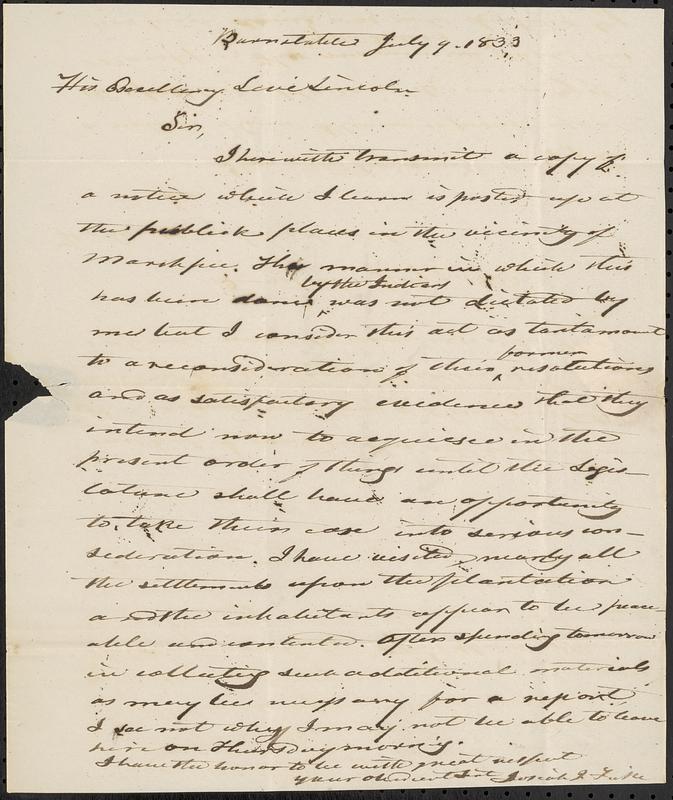 Barnstable July 9. 1833
His Excellency Levi Lincoln
Sir,
I herewith transmit a copy of
a notice which I learn is posted up at
the publick places in the vicinity of
Marshpee. The manner in which this
by the Indians
has been done was not dictated by
me but I consider this act as tantamount
former
to a reconsideration of their resolutions
and as satisfactory evidence that they
intend now to acquiesce in the
present order of things until the Legis-
lature shall have an opportunity
to take their case into serious con-
sideration. I have visited nearly all
the settlements upon the plantation
and the inhabitants appear to be peace-
able and contented. After spending tomorrow
in collecting such additional materials
as may be necessary for a report,
I see not why I may not be able to leave
here on Thursday morning.
I have the honor to be with great respect
your obedient Svt Joseph J. Fiske